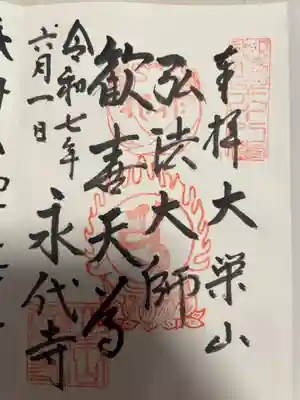 奉拝 大栄山
弘法大師
歓喜天尊
令和七年
六月一日
永代寺